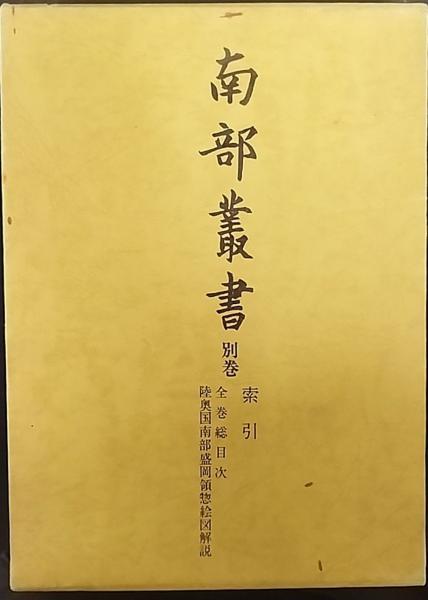 南部叢書
別巻
索引
全巻総目次
陸奥国南部盛岡領惣絵図解説